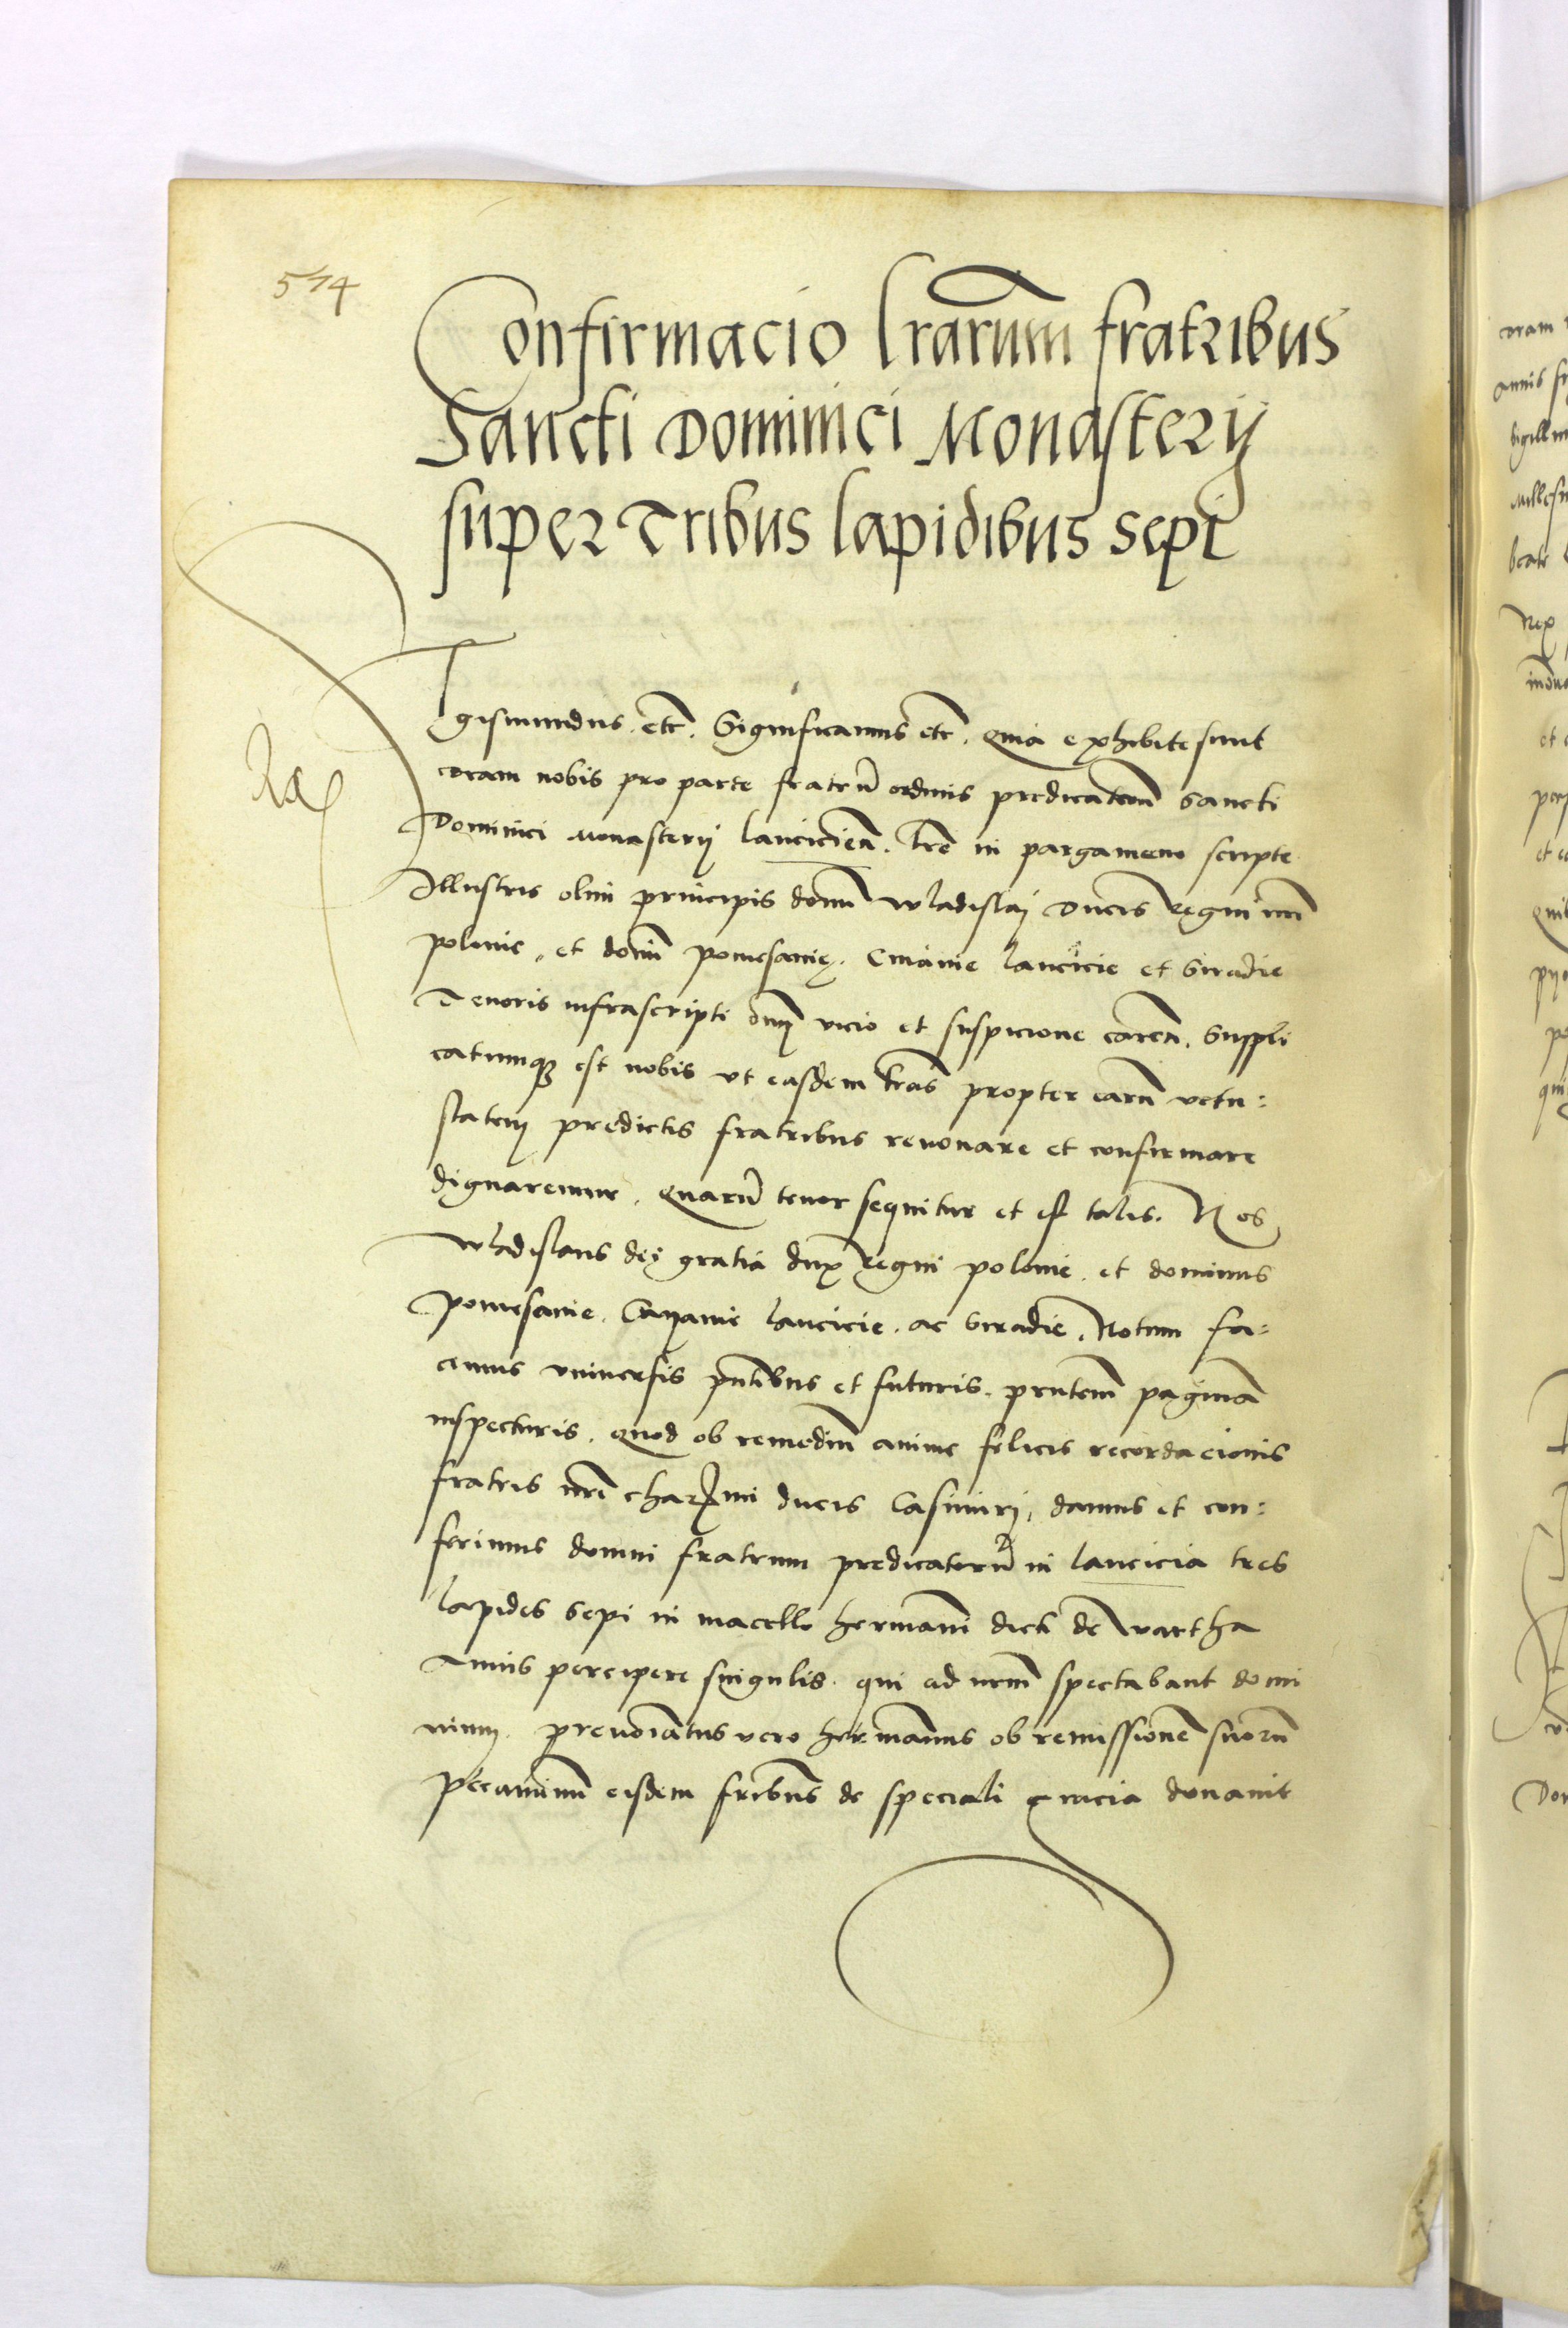 574
Confirmacio lrarum fratribus
Sancti Dominici Monasterij
super Tribus lapidibus sepi
Sigismundus etc. Significamus etc. Quia exhibite sunt
coram nobis pro parte fratrũ ordinis predicatorũ sancti
Dominici Monasterij lanciciẽn. lrẽ in pargameno scripte
Illustris olim principis domĩ wladislaj Ducis Regni nrĩ
polonie, et domĩ pomesanie. Cuiavie lancicie et Siradie
Tenoris infrascripti omj vicio et suspicione careñ. Suppli
catumqȝ est nobis vt easdem lrãs propter earũ vetu:
statem predictis fratribus renovare et confirmare
dignaremur. Quarũ tenor sequitur et est talis. Nos
wladislaus dej gratia dux Regni polonie. et dominus
pomesanie. Cuyavie lancicie. ac Siradie. Notum fa:
cimus vniversis pñtibus et futuris. prñtem paginã
inspecturis. Quod ob remediũ anime felicis recordacionis
fratris nrĩ charxmi ducis Casimirj, damus et con:
ferimus domui fratrum predicatorũ in lancicia tres
lapides sepi in macello hermanni dicti de wartha
Annis percipere singulis. qui ad nrm̃ spectabant domi
nium. prenoiãtus vero hermannus ob remissionẽ suorũ
peccaminũ eisdem frĩbus de speciali gracia donavit
coram
annis
beati
Rex
et